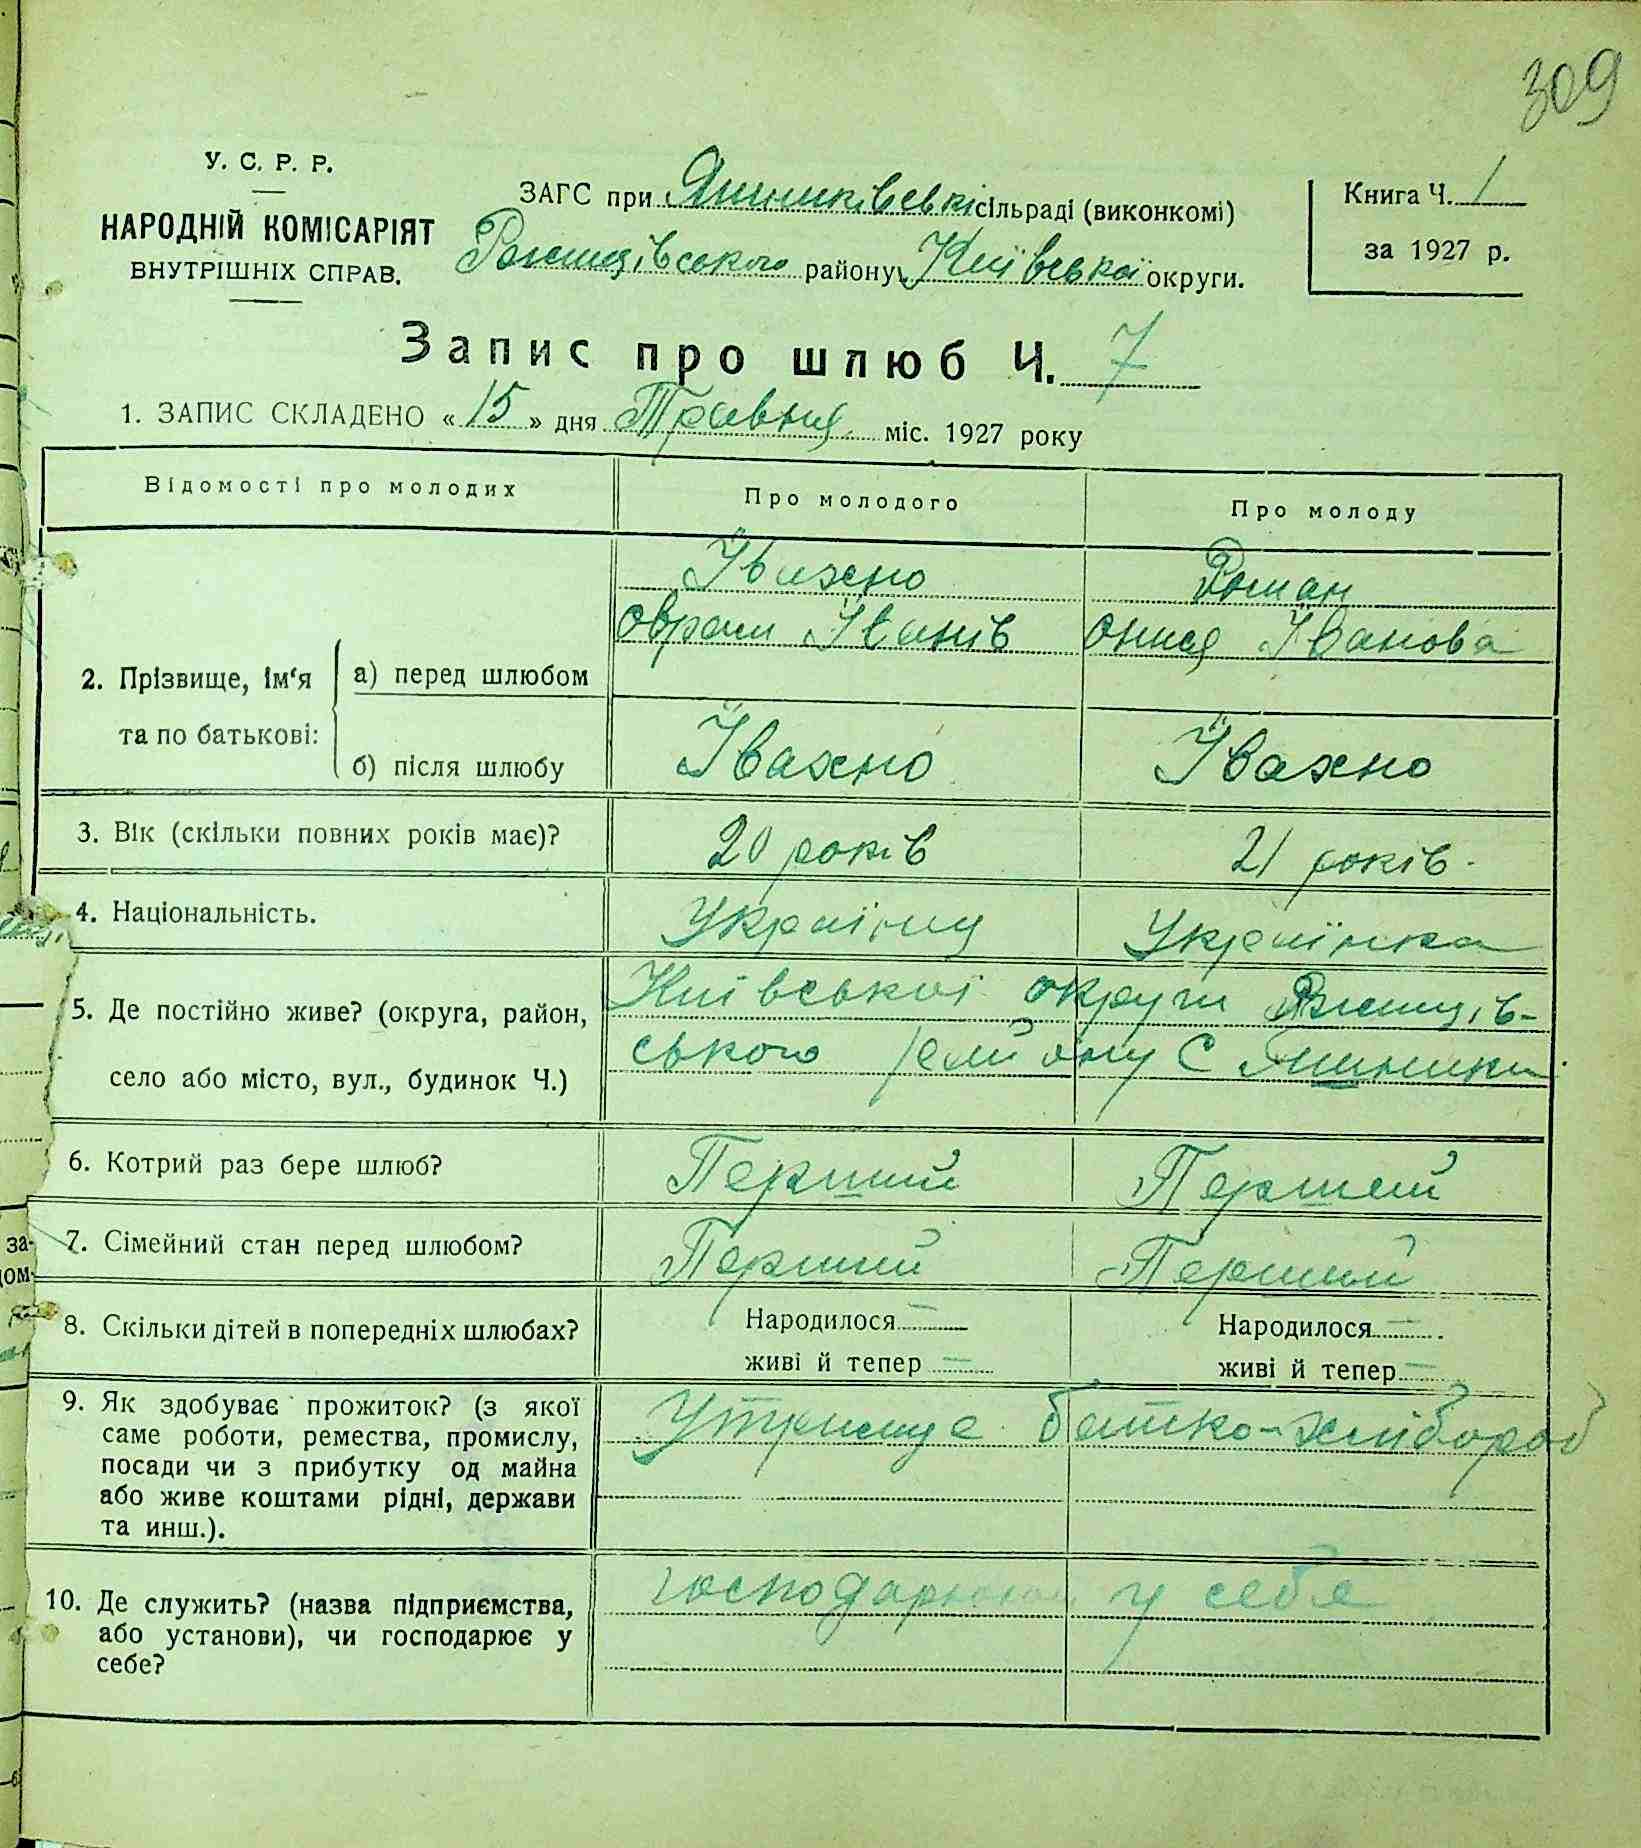 309
У. С. Р. Р.
НАРОДНІЙ КОМІСАРІЯТ
ВНУТРІШНІХ СПРАВ.
ЗАГС при Яшниківські сільраді (виконкомі)
Ржищівського району Київської округи.
Книга Ч. 1
за 1927 р.
Запис про шлюб Ч. 7
1. ЗАПИС СКЛАДЕНО « 15 » дня Травня міс. 1927 року
Відомості про молодих
Про молодого
Про молоду
2. Прізвище, ім‘я та по батькові:
а) перед шлюбом
Івахно
Овром Іванів
Роман
Онися Іванова
б) після шлюбу
Івахно
Івахно
3. Вік (скільки повних років має)?
20 років
21 років.
4. Національність.
Українц
Українка
5. Де постійно живе? (округа, район,
село або місто, вул., будинок Ч.)
Київської округи Ржищів-
ського району С Яшники
6. Котрий раз бере шлюб?
Перший
Перший
7. Сімейний стан перед шлюбом?
Перший
Перший
8. Скільки дітей в попередніх шлюбах?
Народилося —
живі й тепер —
Народилося —
живі й тепер —
9. Як здобуває прожиток? (з якої
саме роботи, ремества, промислу,
посади чи з прибутку од майна
або живе коштами рідні, держави
та инш.).
Утримує батько-хлібороб
10. Де служить? (назва підприємства,
або установи), чи господарює у
себе?
господарює у себе
за-